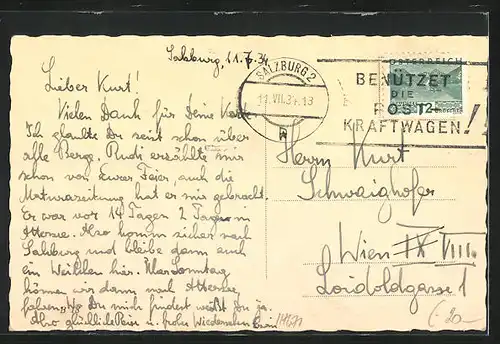 Salzburg, 11.7.34
Lieber Kurt!
Vielen Dank für Deine Karte
Ich glaubte Du seist schon über
alle Berge. Rudi erzählte mir
schon von Eurer Feier, auch die
Maturazeitung hat er mir gebracht.
Er war vor 14 Tagen 2 Tage in
Attersee. Also komm sicher nach
Salzburg und bleibe dann auch
ein Weilchen hier. Sonntag
können wir dann nach Attersee
fahren. Wo Du mich findest weißt Du ja.
Also glückliche Reise u. frohes Wiedersehen
SALZBURG 2
11.VII.34.13
ÖSTERREICH
12
BENÜTZET
DIE
POST-
KRAFTWAGEN!
Herrn Kurt
Schwaighofer
Wien IX VIII.
Loidoldgasse 1